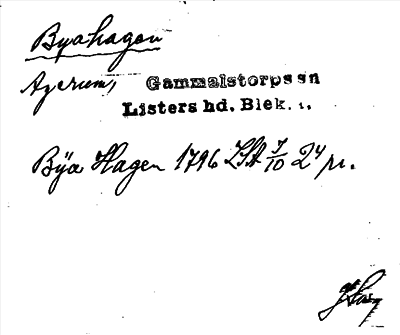 Byahagen
Agerum, Gammalstorps sn
Listers hd. Blek. l.
Bÿa Hagen 1796 LSA J/10 24/4 pr.